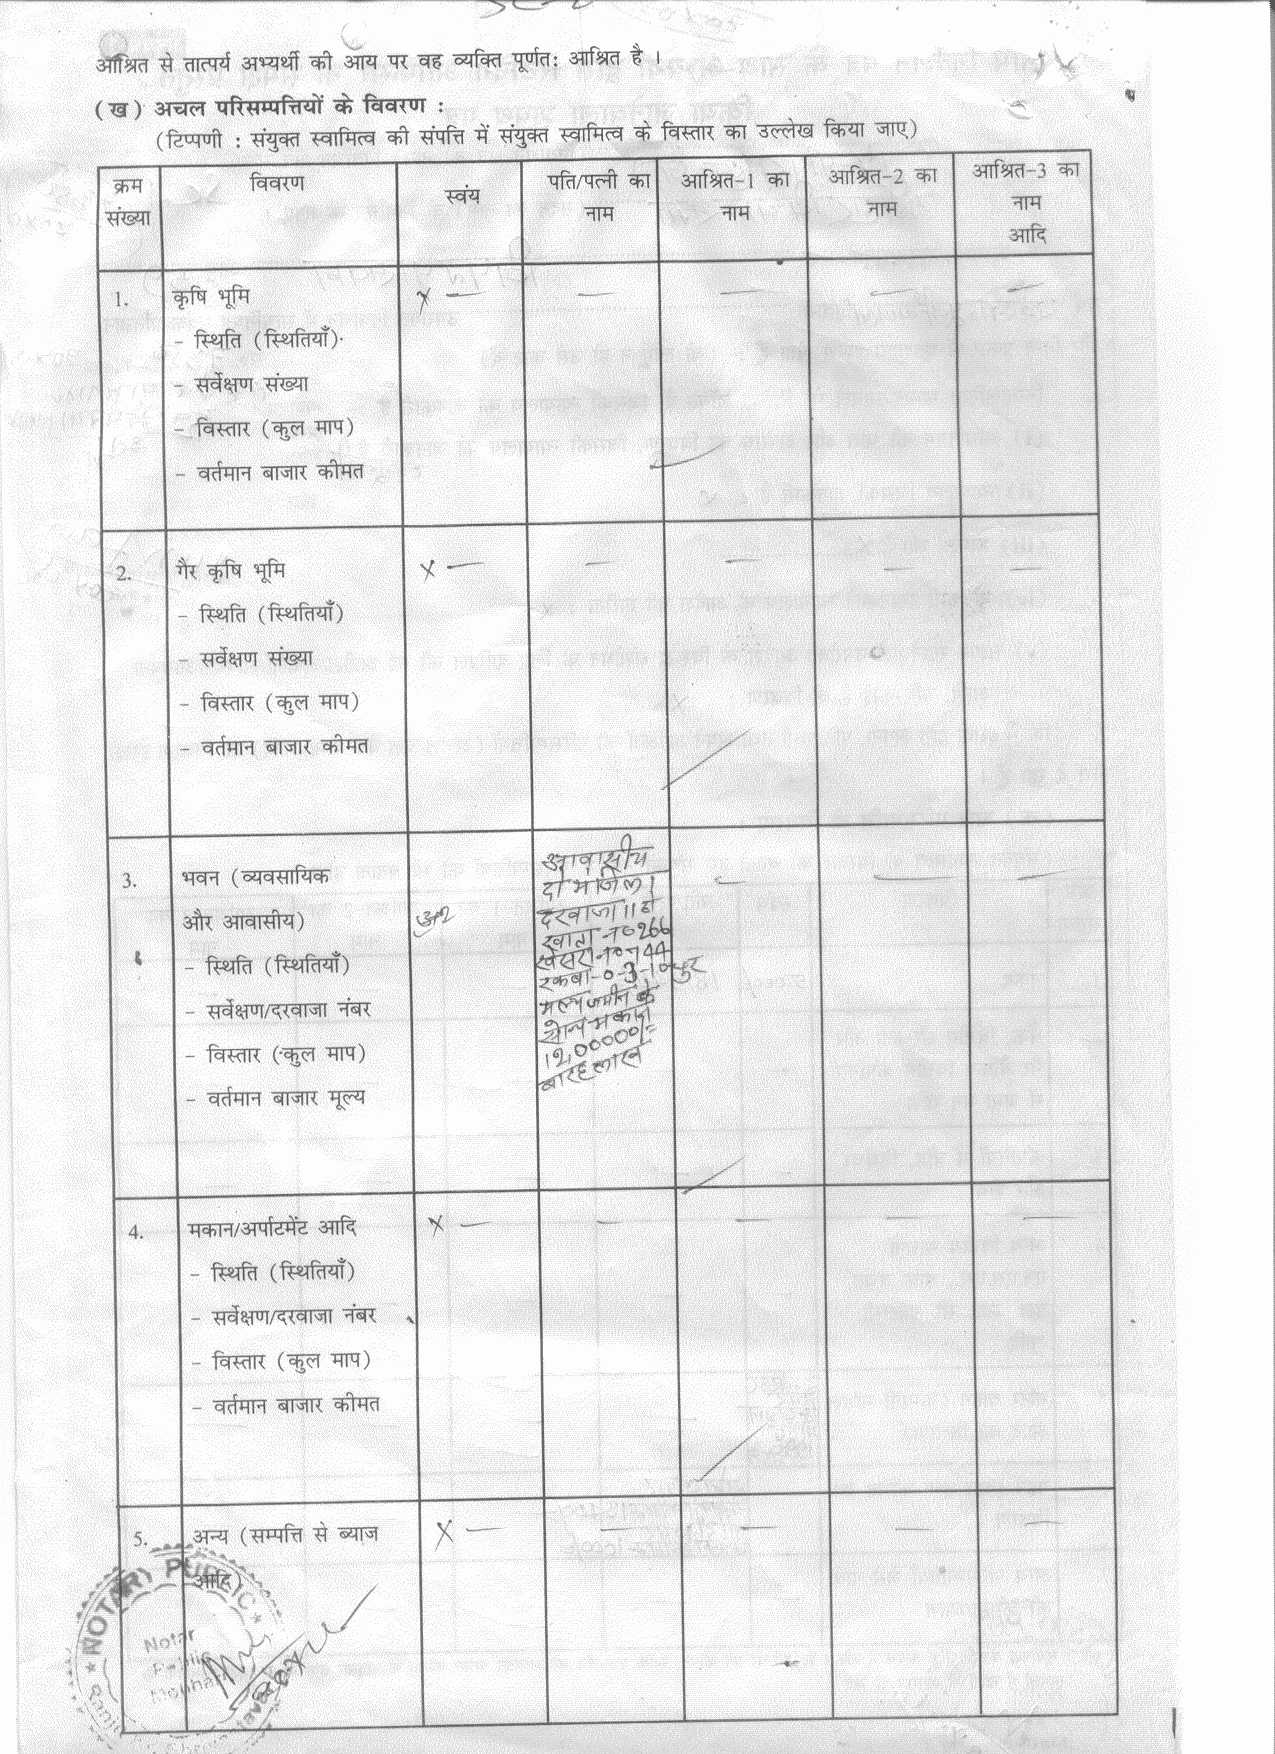 आश्रित से तात्पर्य अभ्यर्थी की आय पर वह व्यक्ति पूर्णत: आश्रित है ।
(ख) अचल परिसम्पत्तियों के विवरण :
(टिप्पणी : संयुक्त स्वामित्व की संपत्ति में संयुक्त स्वामित्व के विस्तार का उल्लेख किया जाए)
क्रम संख्या
विवरण
स्वंय
पति/पत्नी का नाम
आश्रित-1 का नाम
आश्रित-2 का नाम
आश्रित-3 का नाम आदि
1.
कृषि भूमि
x — — — — —
- स्थिति (स्थितियाँ)
- सर्वेक्षण संख्या
- विस्तार (कुल माप)
- वर्तमान बाजार कीमत
2.
गैर कृषि भूमि
x — — — — —
- स्थिति (स्थितियाँ)
- सर्वेक्षण संख्या
- विस्तार (कुल माप)
- वर्तमान बाजार कीमत
3.
भवन (व्यवसायिक
और आवासीय)
- स्थिति (स्थितियाँ)
- सर्वेक्षण/दरवाजा नंबर
- विस्तार (कुल माप)
- वर्तमान बाजार मूल्य
आवासीय
दो मंजिला
दरवाजा 11 हो
खाता न० 266
खेसरा न०
रकबा-0-3-10
मूल्य जमीन के
मकान
12,00000/=
बारह लाख
— — —
4.
मकान/अर्पाटमेंट आदि
x — — — — —
- स्थिति (स्थितियाँ)
- सर्वेक्षण/दरवाजा नंबर
- विस्तार (कुल माप)
- वर्तमान बाजार कीमत
5.
अन्य (सम्पत्ति से ब्याज
आदि)
x — — — — —
NOTARY PUBLIC
Notar
Public